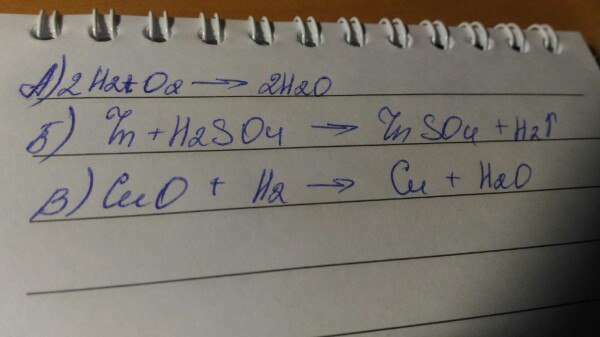 А) 2H2+O2 → 2H2O
Б) Zn + H2SO4 → ZnSO4 + H2↑
В) CuO + H2 → Cu + H2O